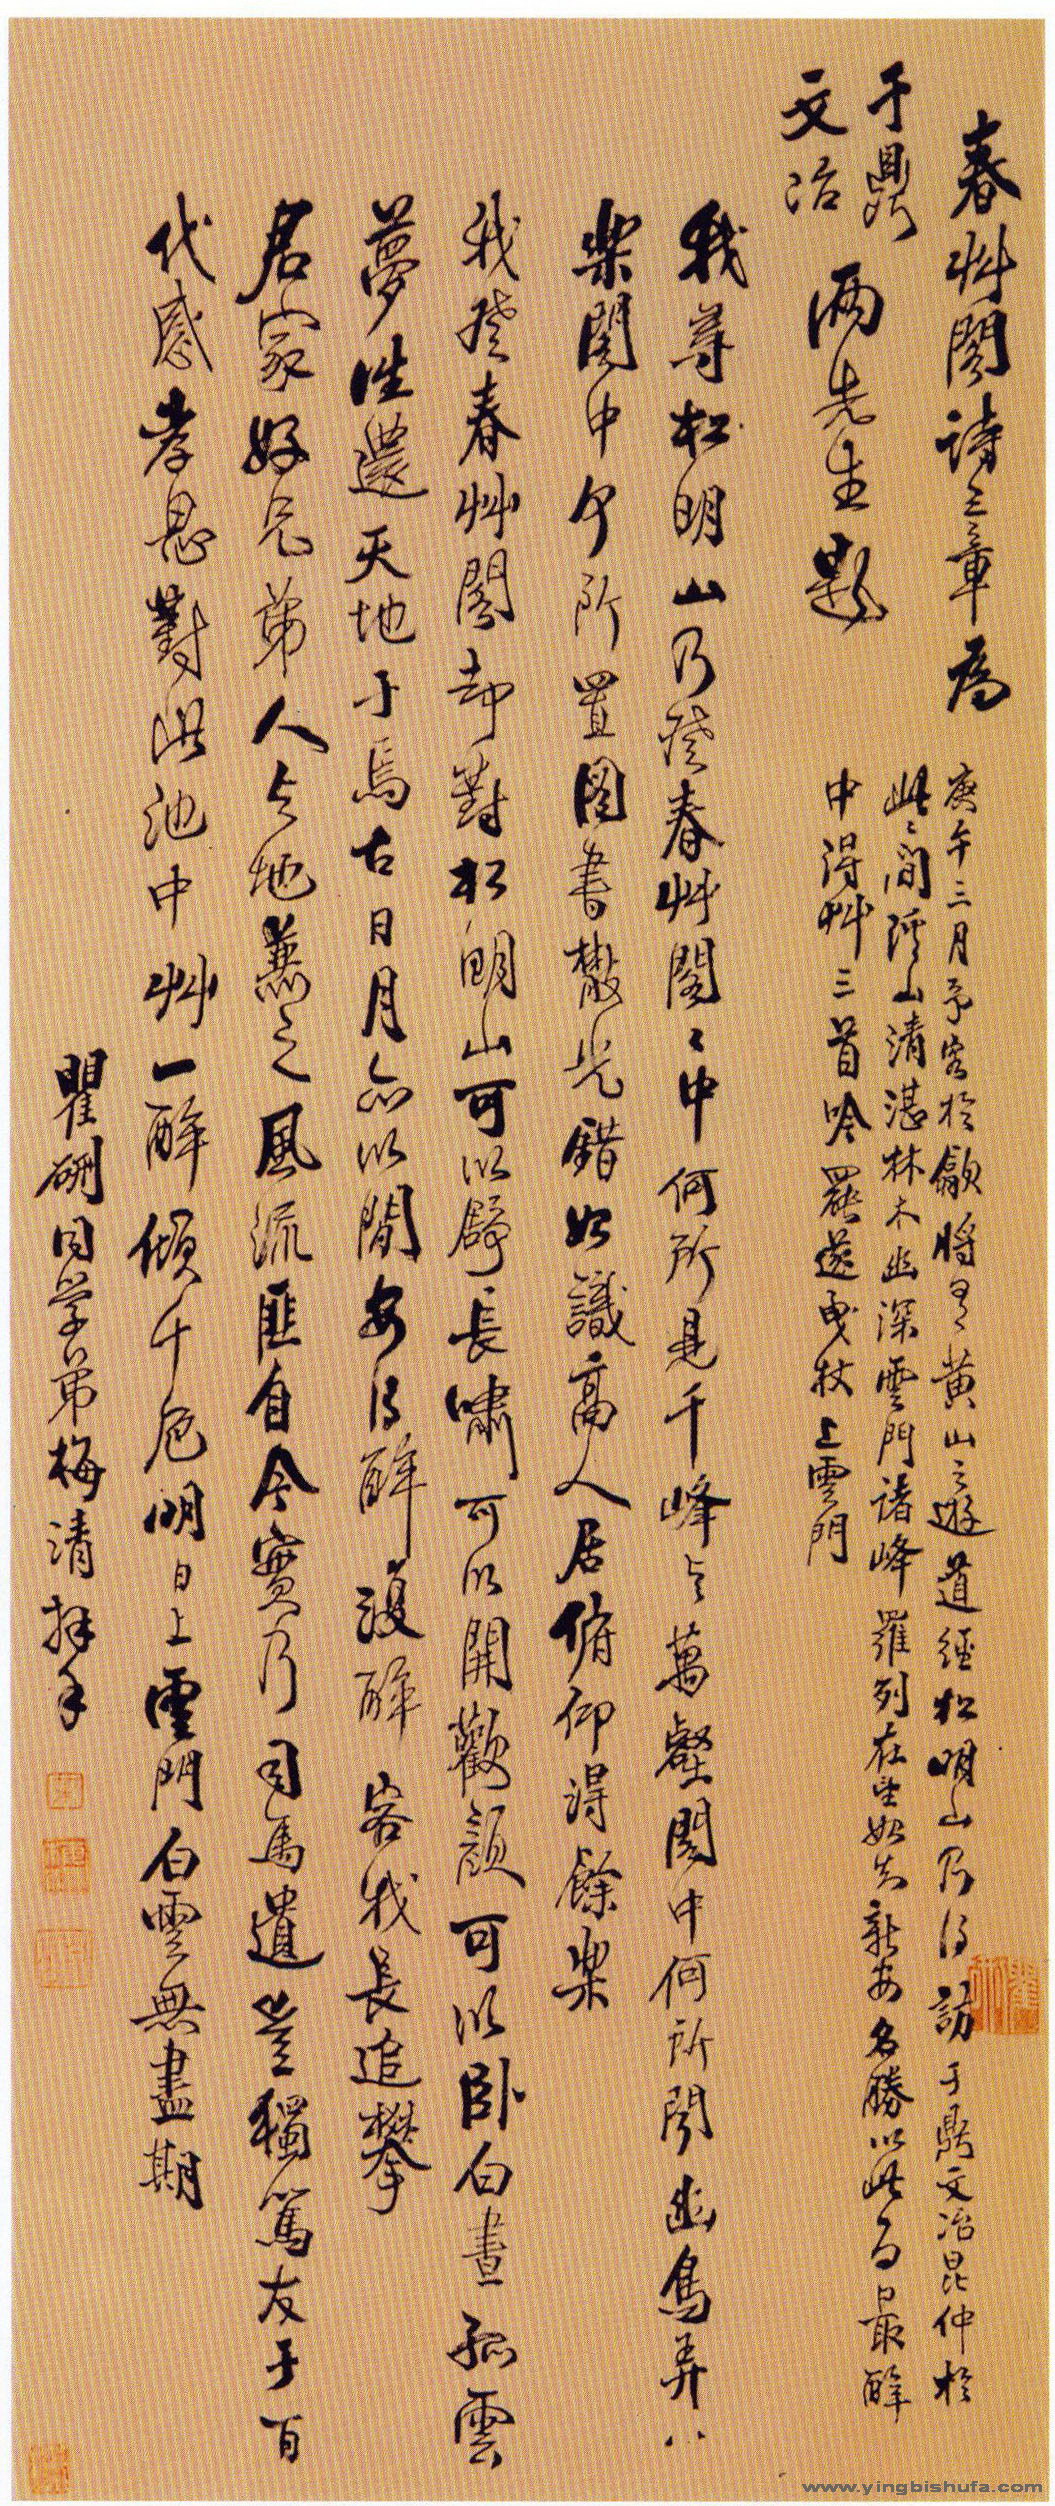 春艸閣詩三章為
于鼎
文冶
兩先生題
庚午三月予客於歙將有黃山之遊道經松明山乃得訪于鼎文冶昆仲於
此此間溪山清湛林木幽深雲門諸峰羅列在望始知新安名勝以此為最醉
中得艸三首吟罷遂曳杖上雲門
我尋松明山乃登春艸閣閣中何所見千峰與萬壑閣中何所聞幽鳥弄八
樂閣中何所置圖書散光錯始識高人居俯仰得餘樂
我登春艸閣却對松明山可以舒長嘯可以開歡顏可以臥白晝孤雲
夢往還天地于焉古日月亦以閒安得醉復醉容我長追攀
君家好兄弟人與地兼之風流匪自今實乃司馬遺豈獨篤友于百
代感孝思對此池中艸一醉傾千巵明日上雲門白雲無盡期
瞿硎同學弟梅清拜手
www.yingbishufa.com